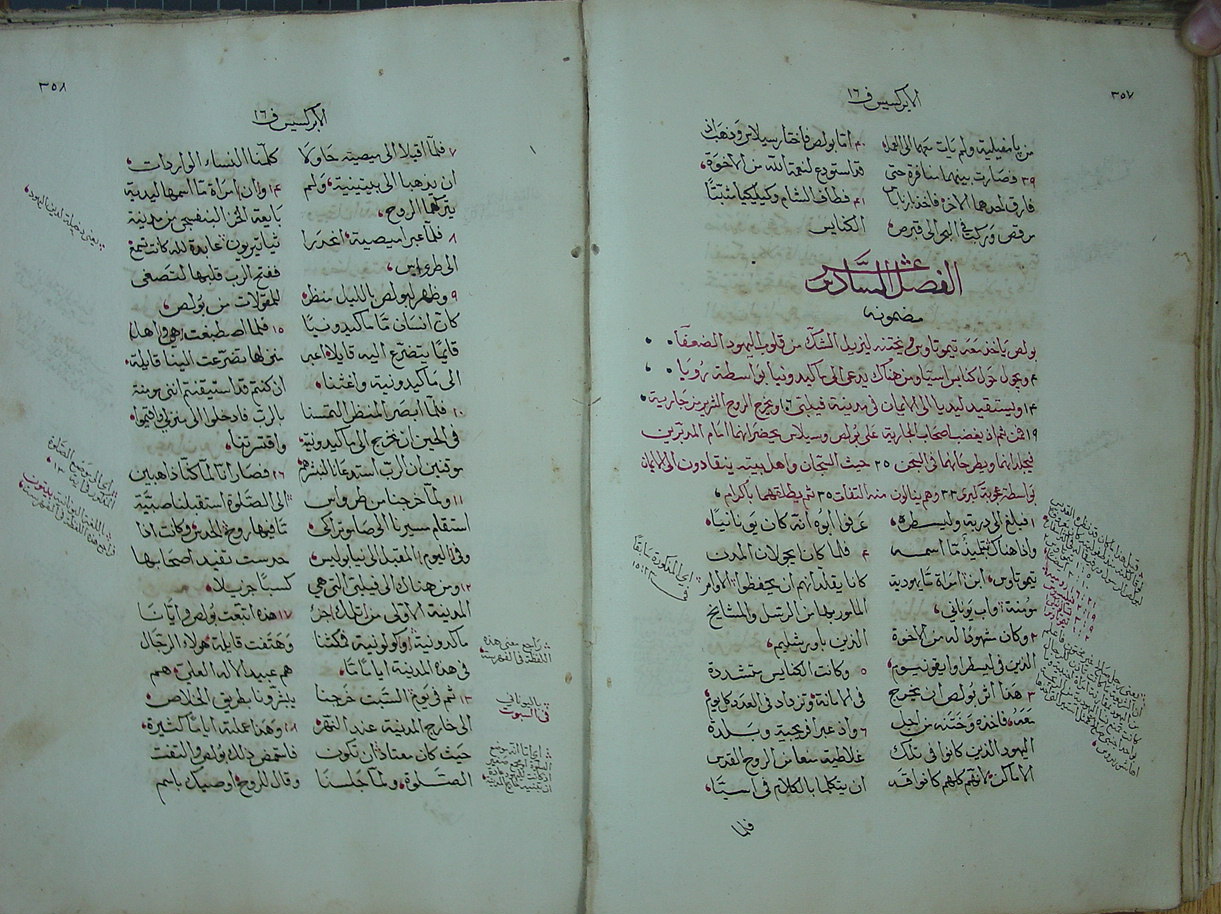 ٣٥٧
الابركسيس ف ١٦
من بامفيلية ولم يات معهما الى العمل
٣٩ فصارت بينهما منافرة حتى
فارق احدهما الاخر فاخذ برنابا
مرقص وركب في البحر الى قبرص
٤٠ اما بولص فاختار سيلاس وذهب اذ
قد استودع لنعمة الله من الاخوة
٤١ فطاف الشام وكيليكيا مثبتًا
الكنايس
الفصل السادس عشر
مضمونه
بولص ياخذ معه تيموتاوس ويختنه ليزيل الشك من قلوب اليهود الضعفآ
٤ ويجول حول كنايس اسيا ومن هناك يدعى الى ماكيدونيا بواسطة رويا
١٤ وليستفيد ليديا الى الايمان في مدينة فيلبي ١٦ ويخرج الروح الشرير من جارية
١٩ فمن ثم اذ يغضب اصحاب الجارية على بولص وسيلاس يحضرانهما امام المدبرين
فيجلدانهما ويطرحانهما في السجن ٢٥ حيث السجان واهل بيته ينقادون الى الايمان
بواسطة عجوبة كبرى ٣٣ وهم ينالون منه التفات ٣٥ ثم يطلقهما باكرام
١ فبلغ الى دربة وليسطرة
واذا هناك تلميذ ما اسمه
تيموتاوس ابن امراة ما يهودية
مومنة واب يوناني
٢ وكان شهودا له من الاخوة
الذين في ليسطرا وايقونيوم
٣ هذا اثر بولص ان يخرج
معه فاخذه وختنه من اجل
اليهود الذين كانوا في تلك
الاماكن لانهم كلهم كانوا قد
عرفوا ابوه انه كان يونانيا
٤ فلما كانا يجولان المدن
كانا يقلدانهم ان يحفظوا الاوامر
المامور بها من الرسل والمشايخ
الذين باورشليم
٥ وكانت الكنايس متشددة
في الامانة وتزداد في العدد كل يوم
٦ واذ عبرا فريجية وبلدة
غلاطية منعا من الروح القدس
ان يتكلما بالكلام في اسيا
اي المذكورة سابقا
ف ١٥: ٢٣
فلما
٣٥٨
الابركسيس ف ١٦
٧ فلما اقبلا الى ميصية حاولا
ان يذهبا الى بيتينية ولم
يتركهما الروح
٨ فلما عبرا ميصية انحدرا
الى طرواس
٩ وظهر لبولص بالليل منظر
كان انسان ما ماكيدونيا
قايما يتضرع اليه قايلا اعبر
الى ماكيدونية واغثنا
١٠ فلما ابصر المنظر التمسنا
في الحين ان نخرج الى ماكيدونية
موقنين ان الرب استدعانا لنبشرهم
١١ ولما خرجنا من طرواس
استقام سيرنا الى صاموتراكي
وفي اليوم المقبل الى نيابوليس
١٢ ومن هناك الى فيلبي التي هي
المدينة الاولى من تلك اجزآ
ماكدونية او كولونية فمكثنا
في هذه المدينة اياما ما
١٣ ثم في يوم السبت خرجنا
الى خارج المدينة عند النهر
حيث كان معتاد ان تكون
الصلوة ولما جلسنا
كلمنا النساء الواردات
١٤ وان امراة ما اسمها ليدية
بايعة الخز البنفسجي من مدينة
ثياتيريون عابدة لله كانت تسمع
ففتح الرب قلبها لتصغى
للمقولات من بولص
١٥ فلما اصطبغت هي واهل
منزلها تضرعت الينا قايلة
ان كنتم قد استيقنتم انني مومنة
بالرب فادخلوا الى منزلي واقيموا
واقسرتنا
١٦ فصار اننا لما كنا ذاهبين
الى الصلوة استقبلنا صبية
ما فيها روح الحدس وكانت اذا
حدست تفيد اصحابها
كسبًا جزيلا
١٧ هذه اتبعت بولص وايانا
وهتفت قايلة هولاء الرجال
هم عبيد الاله العلي وهم
يبشرونا بطريق الخلاص
١٨ وهذا عملته اياما كثيرة
فامتعض ذلك بولص والتفت
وقال للروح اوصيك باسم
يعني دخيلة لدين اليهود
راجع معنى هذه
اللفظة في الفهرست
باليوناني
في السبوت